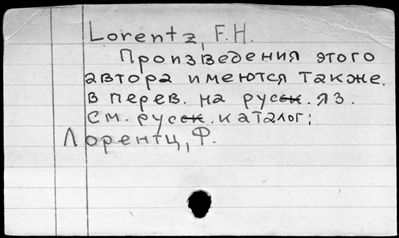 Lorentz, F.H.
Произведения этого
автора имеются также.
в перев. на русск. яз.
См. русск. каталог:
Лорентц, Ф.